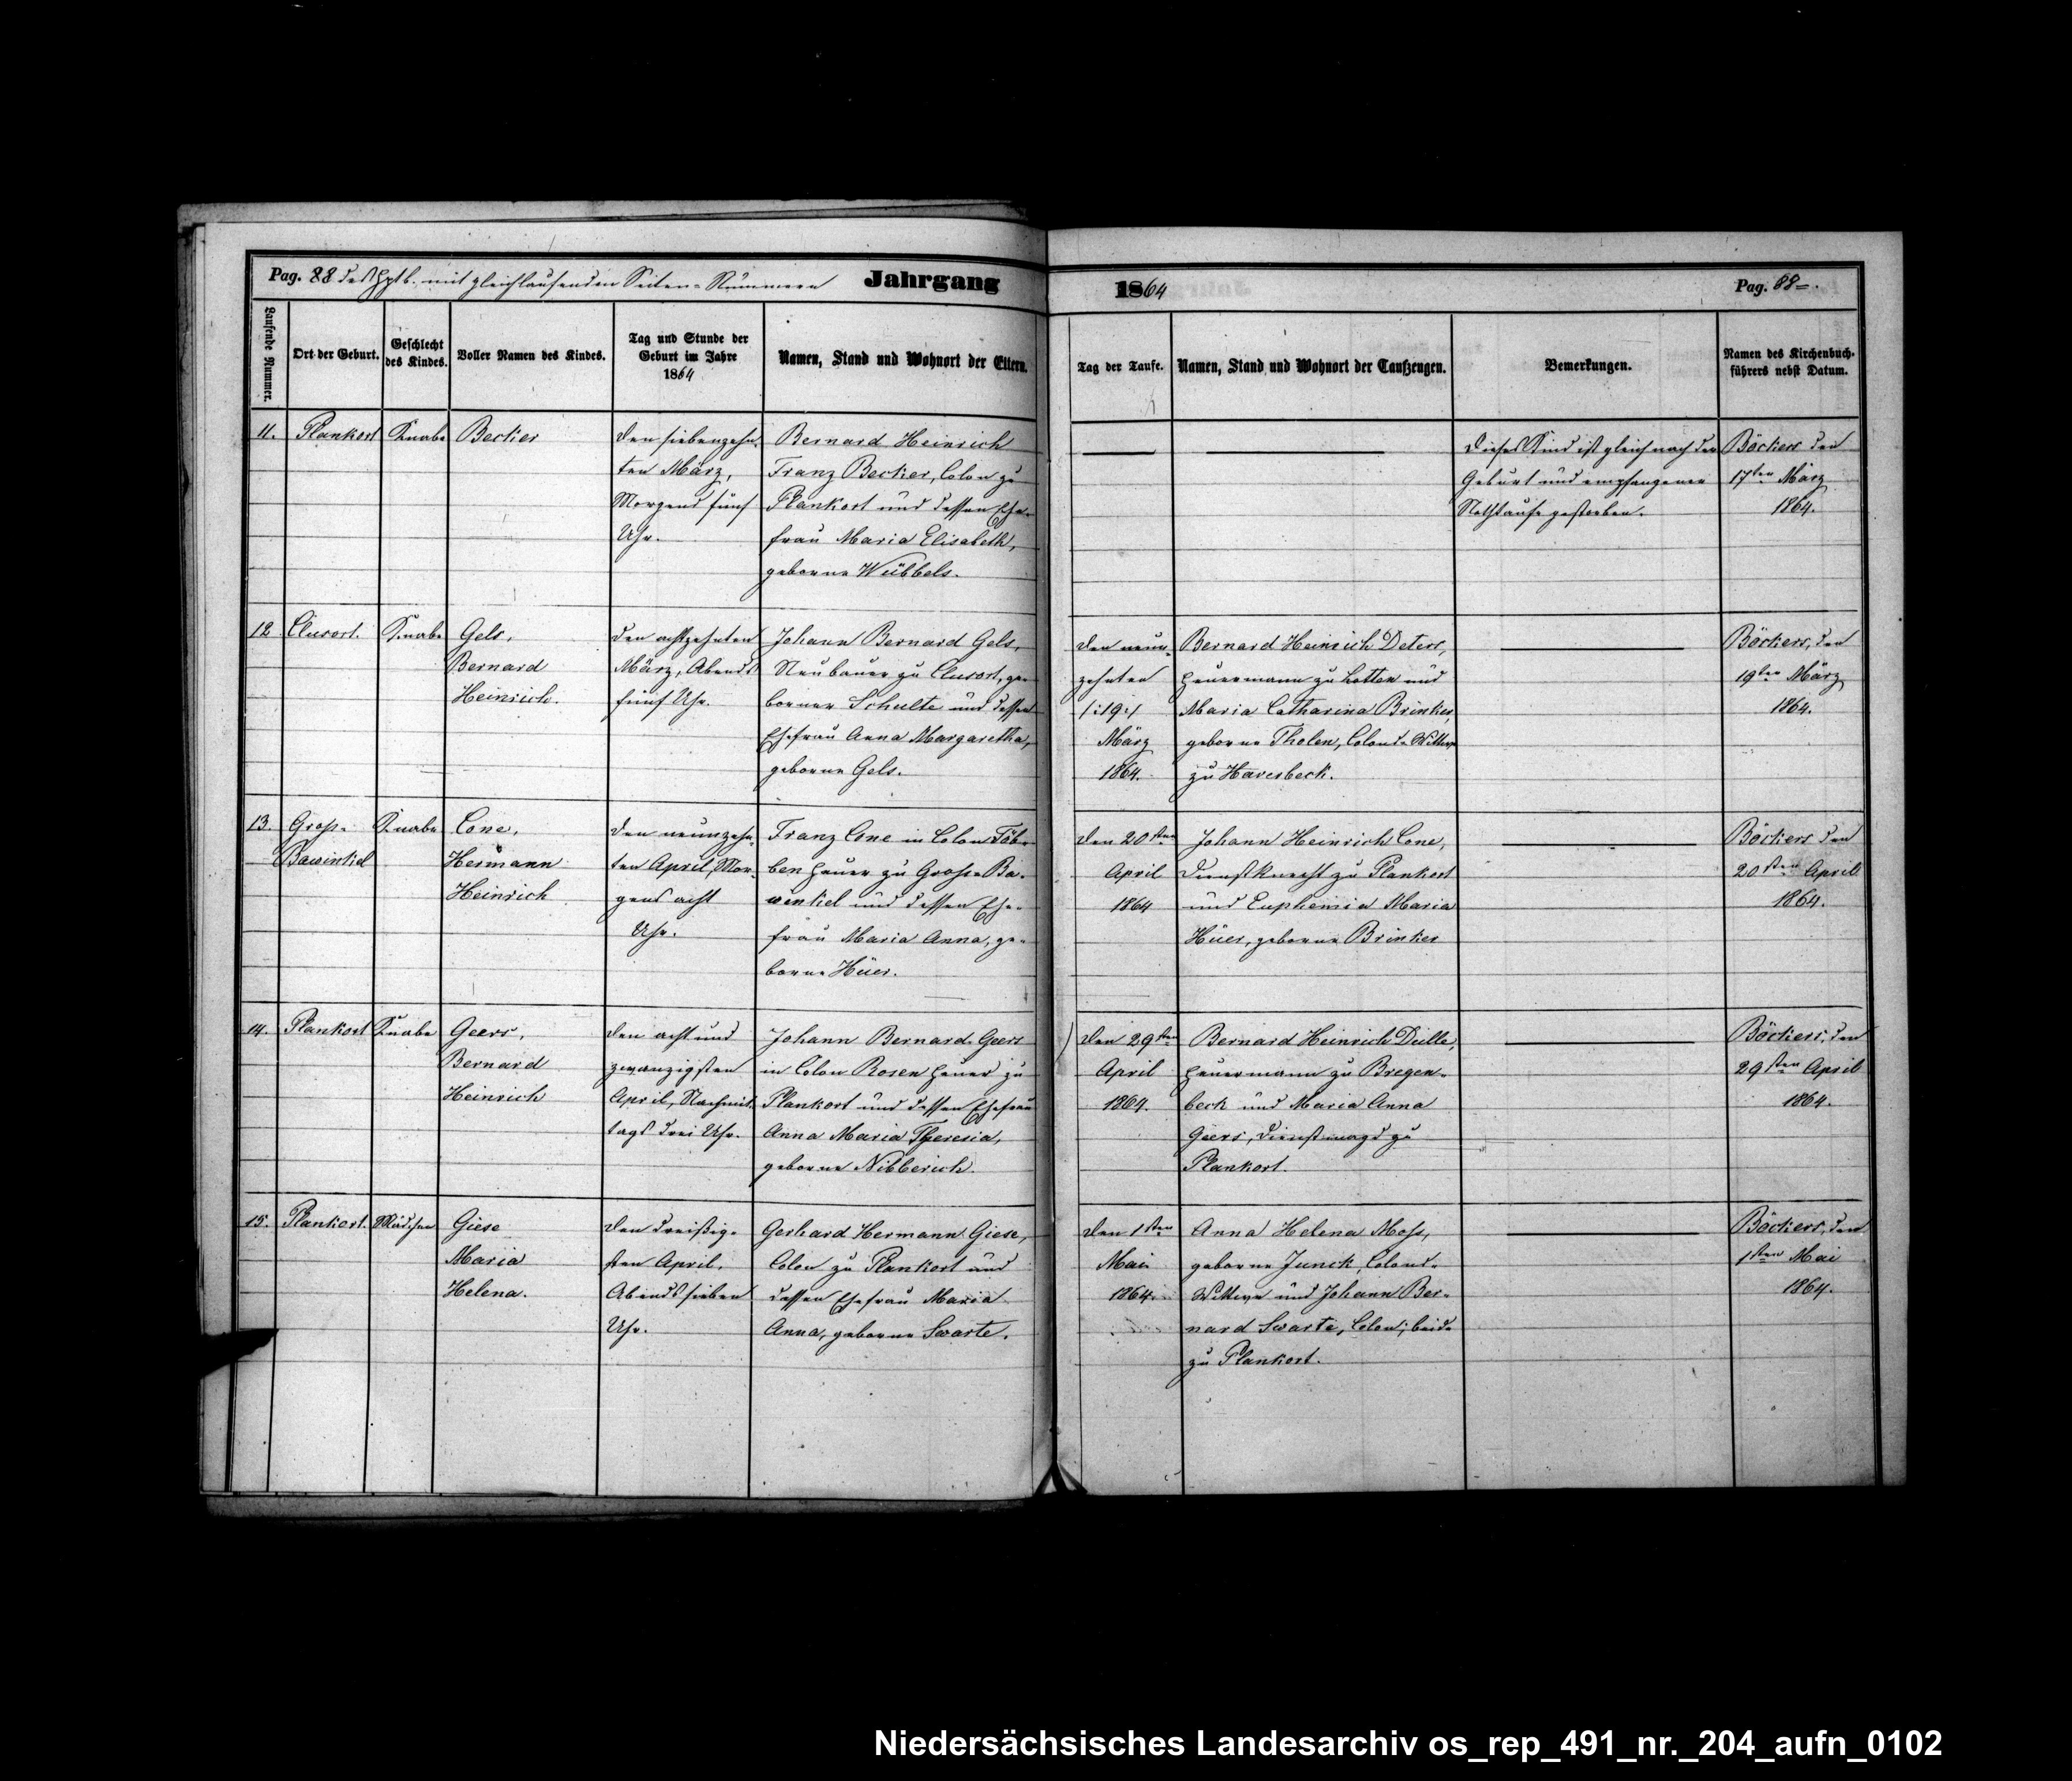 Pag. 88 des Hptb. mit gleichlaufenden Seiten-Nummern Jahrgang
1864 Pag. 88
Laufende Nummer.
Ort der Geburt.
Geschlecht
des Kindes.
Voller Namen des Kindes.
Tag und Stunde der
Geburt im Jahre
1864
Namen, Stand und Wohnort der Eltern.
Tag der Taufe.
Namen, Stand und Wohnort der Taufzeugen.
Bemerkungen.
Namen des Kirchenbuch-
führers nebst Datum.
11.
Plankort
Knabe
Becker
den siebenzehn-
ten März,
Morgens fünf
Uhr.
Bernard Heinrich
Franz Becker, Colon zu
Plankort und dessen Ehe-
frau Maria Elisabeth,
geborne Wübbels.
Dieses Kind ist gleich nach der
Geburt und empfangener
Nothtaufe gestorben.
Böckers den
17ten März
1864.
12
Clusort.
Knabe
Gels,
Bernard
Heinrich.
den achtzehnten
März, Abends
fünf Uhr.
Johann Bernard Gels,
Neubauer zu Clusort, ge-
borner Schulte und dessen
Ehefrau Anna Margaretha,
geborne Gels.
den neun-
zehnten
/:19:/
März
1864.
Bernard Heinrich Deters,
Heuermann zu Lotten und
Maria Catharina Brinker,
geborne Tholen, Colons-Wittwe
zu Haverbeck.
Böckers, den
19ten März
1864.
13.
Groß-
Bawinkel
Knabe
Cone,
Hermann
Heinrich
den neunzehn-
ten April, Mor-
gens acht
Uhr.
Franz Cone in Colon Töb-
ben Heuer zu Groß-Ba-
winkel und dessen Ehe-
frau Maria Anna, ge-
borne Hüer.
den 20sten
April
1864
Johann Heinrich Cone,
Dienstknecht zu Plankort
und Euphemia Maria
Hüer, geborne Brinker
Böckers den
20sten April
1864.
14.
Plankort
Knabe
Geers,
Bernard
Heinrich
den acht und
zwanzigsten
April, Nachmit-
tags drei Uhr.
Johann Bernard Geers
in Colon Rosen Heuer zu
Plankort und dessen Ehefrau
Anna Maria Theresia,
geborne Nibberich.
den 29sten
April
1864.
Bernard Heinrich Dulle,
Heuermann zu Bregen-
beck und Maria Anna
Geers, Dienstmagd zu
Plankort.
Böckers, den
29sten April
1864.
15.
Plankort.
Mädchen
Giese
Maria
Helena.
den dreißig-
sten April,
Abends sieben
Uhr.
Gerhard Hermann Giese,
Colon zu Plankort und
dessen Ehefrau Maria
Anna, geborne Swarte.
den 1sten
Mai
1864.
Anna Helena Moß,
geborne Junck, Colons-
Wittwe und Johann Ber-
nard Swarte, Colon; beide
zu Plankort.
Böckers, den
1sten Mai
1864.
Niedersächsisches Landesarchiv os_rep_491_nr._204_aufn_0102